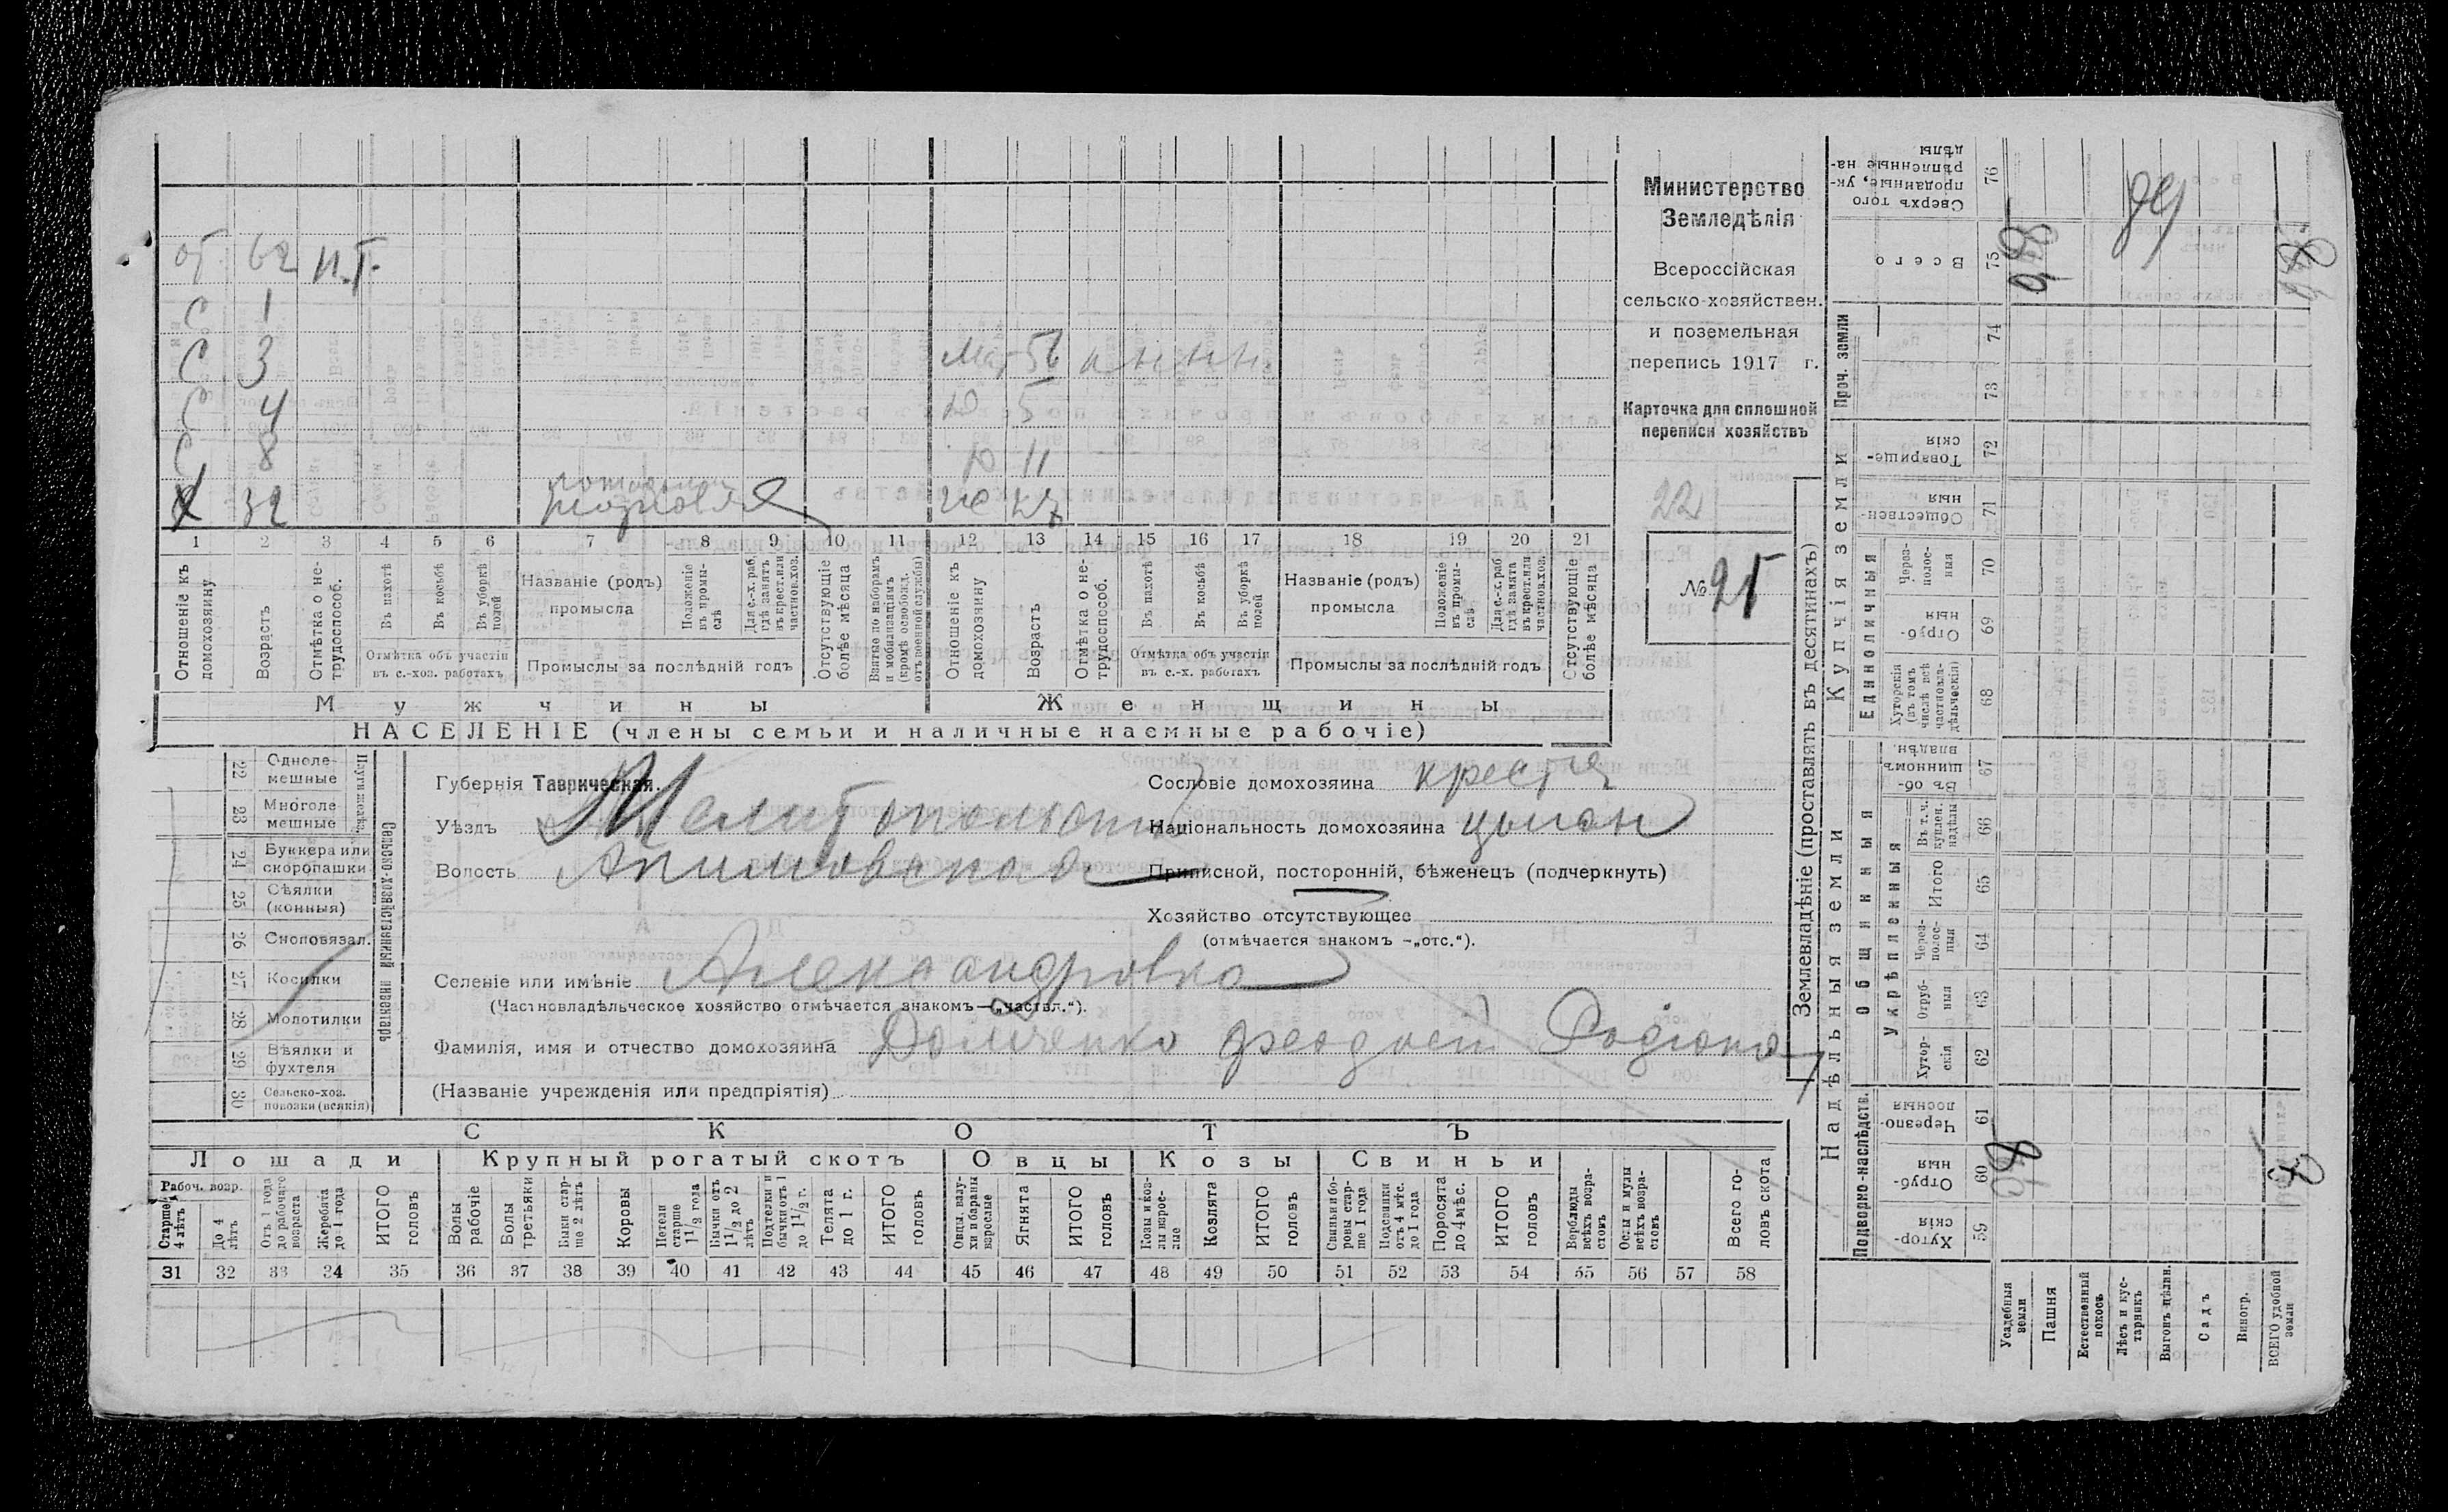 от 62 н.т.
С 1
С 3 Ма 56 н н н н
С 4 Д 5
С 8 Д 11
Х 32 лошадьми торговля Же 27
1 2 3 4 5 6 7 8 9 10 11 12 13 14 15 16 17 18 19 20 21
Отношеніе къ домохозяину.
Возрастъ
Отмѣтка о не-трудоспособ.
Въ пахотѣ
Въ косьбѣ
Въ уборкѣ полей
Отмѣтка объ участіи въ с.-хоз. работахъ
Названіе (родъ) промысла
Положеніе въ промы-слѣ
Для с.-х. раб. гдѣ занятъ въ крест. или частнов. хоз.
Промыслы за послѣдній годъ
Отсутствующіе болѣе мѣсяца
Взятые по наборамъ и мобилизаціямъ (кромѣ освобожд. отъ военной службы)
Отношеніе къ домохозяину
Возрастъ
Отмѣтка о не-трудоспособ.
Въ пахотѣ
Въ косьбѣ
Въ уборкѣ полей
Отмѣтка объ участіи въ с.-х. работахъ
Названіе (родъ) промысла
Положеніе въ промы-слѣ
Для с.-х. раб. гдѣ занята въ крест. или частнов. хоз.
Промыслы за послѣдній годъ
Отсутствующіе болѣе мѣсяца
Мужчины Женщины
НАСЕЛЕНІЕ (члены семьи и наличные наемные рабочіе)
Министерство
Земледѣлія
Всероссійская
сельско-хозяйствен.
и поземельная
перепись 1917 г.
Карточка для сплошной
переписи хозяйствъ
22
№ 25
22 Однолемешные
23 Многолемешные
24 Буккера или скоропашки
25 Сѣялки (конныя)
26 Сноповязал.
27 Косилки
28 Молотилки
29 Вѣялки и фухтеля
30 Сельско-хоз. повозки (всякія)
Сельско-хозяйственный инвентарь
Губернія Таврическая.
Уѣздъ Мелитопольскій
Волость Акимовская
Сословіе домохозяина крестя
Національность домохозяина цыган
Приписной, посторонній, бѣженецъ (подчеркнуть)
Хозяйство отсутствующее
(отмѣчается знакомъ —„отс.“).
Селеніе или имѣніе Александровка
(Частновладѣльческое хозяйство отмѣчается знакомъ—„частвл.“).
Фамилія, имя и отчество домохозяина Феодосій Родіоно
(Названіе учрежденія или предпріятія)
СКОТЪ
Лошади Крупный рогатый скотъ Овцы Козы Свиньи
Рабоч. возр.
Старше 4 лѣтъ
До 4 лѣтъ
Отъ 1 года до рабочаго возраста
Жеребята до 1 года
ИТОГО головъ
Волы рабочіе
Волы третьяки
Быки стар-ше 2 лѣтъ
Коровы
Нетели старше 1 1/2 года
Бычки отъ 1 1/2 до 2 лѣтъ
Подтелки и быки отъ 1 до 1 1/2 г.
Телята до 1 г.
ИТОГО головъ
Овцы, валу-хи и бараны взрослые
Ягнята
ИТОГО головъ
Козы и коз-лы взрос-лые
Козлята
ИТОГО головъ
Свиньи и бо-ровы стар-ше 1 года
Подсвинки отъ 4 мѣс. до 1 года
Поросята до 4 мѣс.
ИТОГО головъ
Верблюды всѣхъ возра-стовъ
Ослы и мулы всѣхъ возра-стовъ
Всего го-ловъ скота
31 32 33 34 35 36 37 38 39 40 41 42 43 44 45 46 47 48 49 50 51 52 53 54 55 56 57 58
Землевладѣніе (проставлять въ десятинахъ)
Надѣльныя земли
Купчія земли
Проч. земли
Подворно-наслѣдств.
Общинныя
Укрѣпленныя
Единоличныя
Сверхъ того проданные, ук-рѣпленные на-дѣлы 76
Всего 75
74
73
Товарище-скія 72
Обществен-ныя 71
Через-полос-ныя 70
Отруб-ныя 69
Хуторскія (въ томъ числѣ всѣ частновла-дѣльческія) 68
Въ об-щинномъ владѣн. 67
Въ т. ч. куплен. надѣлы 66
Итого 65
Через-полос-ныя 64
Отруб-ныя 63
Хутор-скія 62
Черезпо-лосныя 61
Отруб-ныя 60
Хутор-скія 59
Усадебныя земли
Пашня
Естественный покосъ
Лѣсъ и кус-тарникъ
Выгонъ цѣлин.
Садъ
Виногр.
ВСЕГО удобной земли